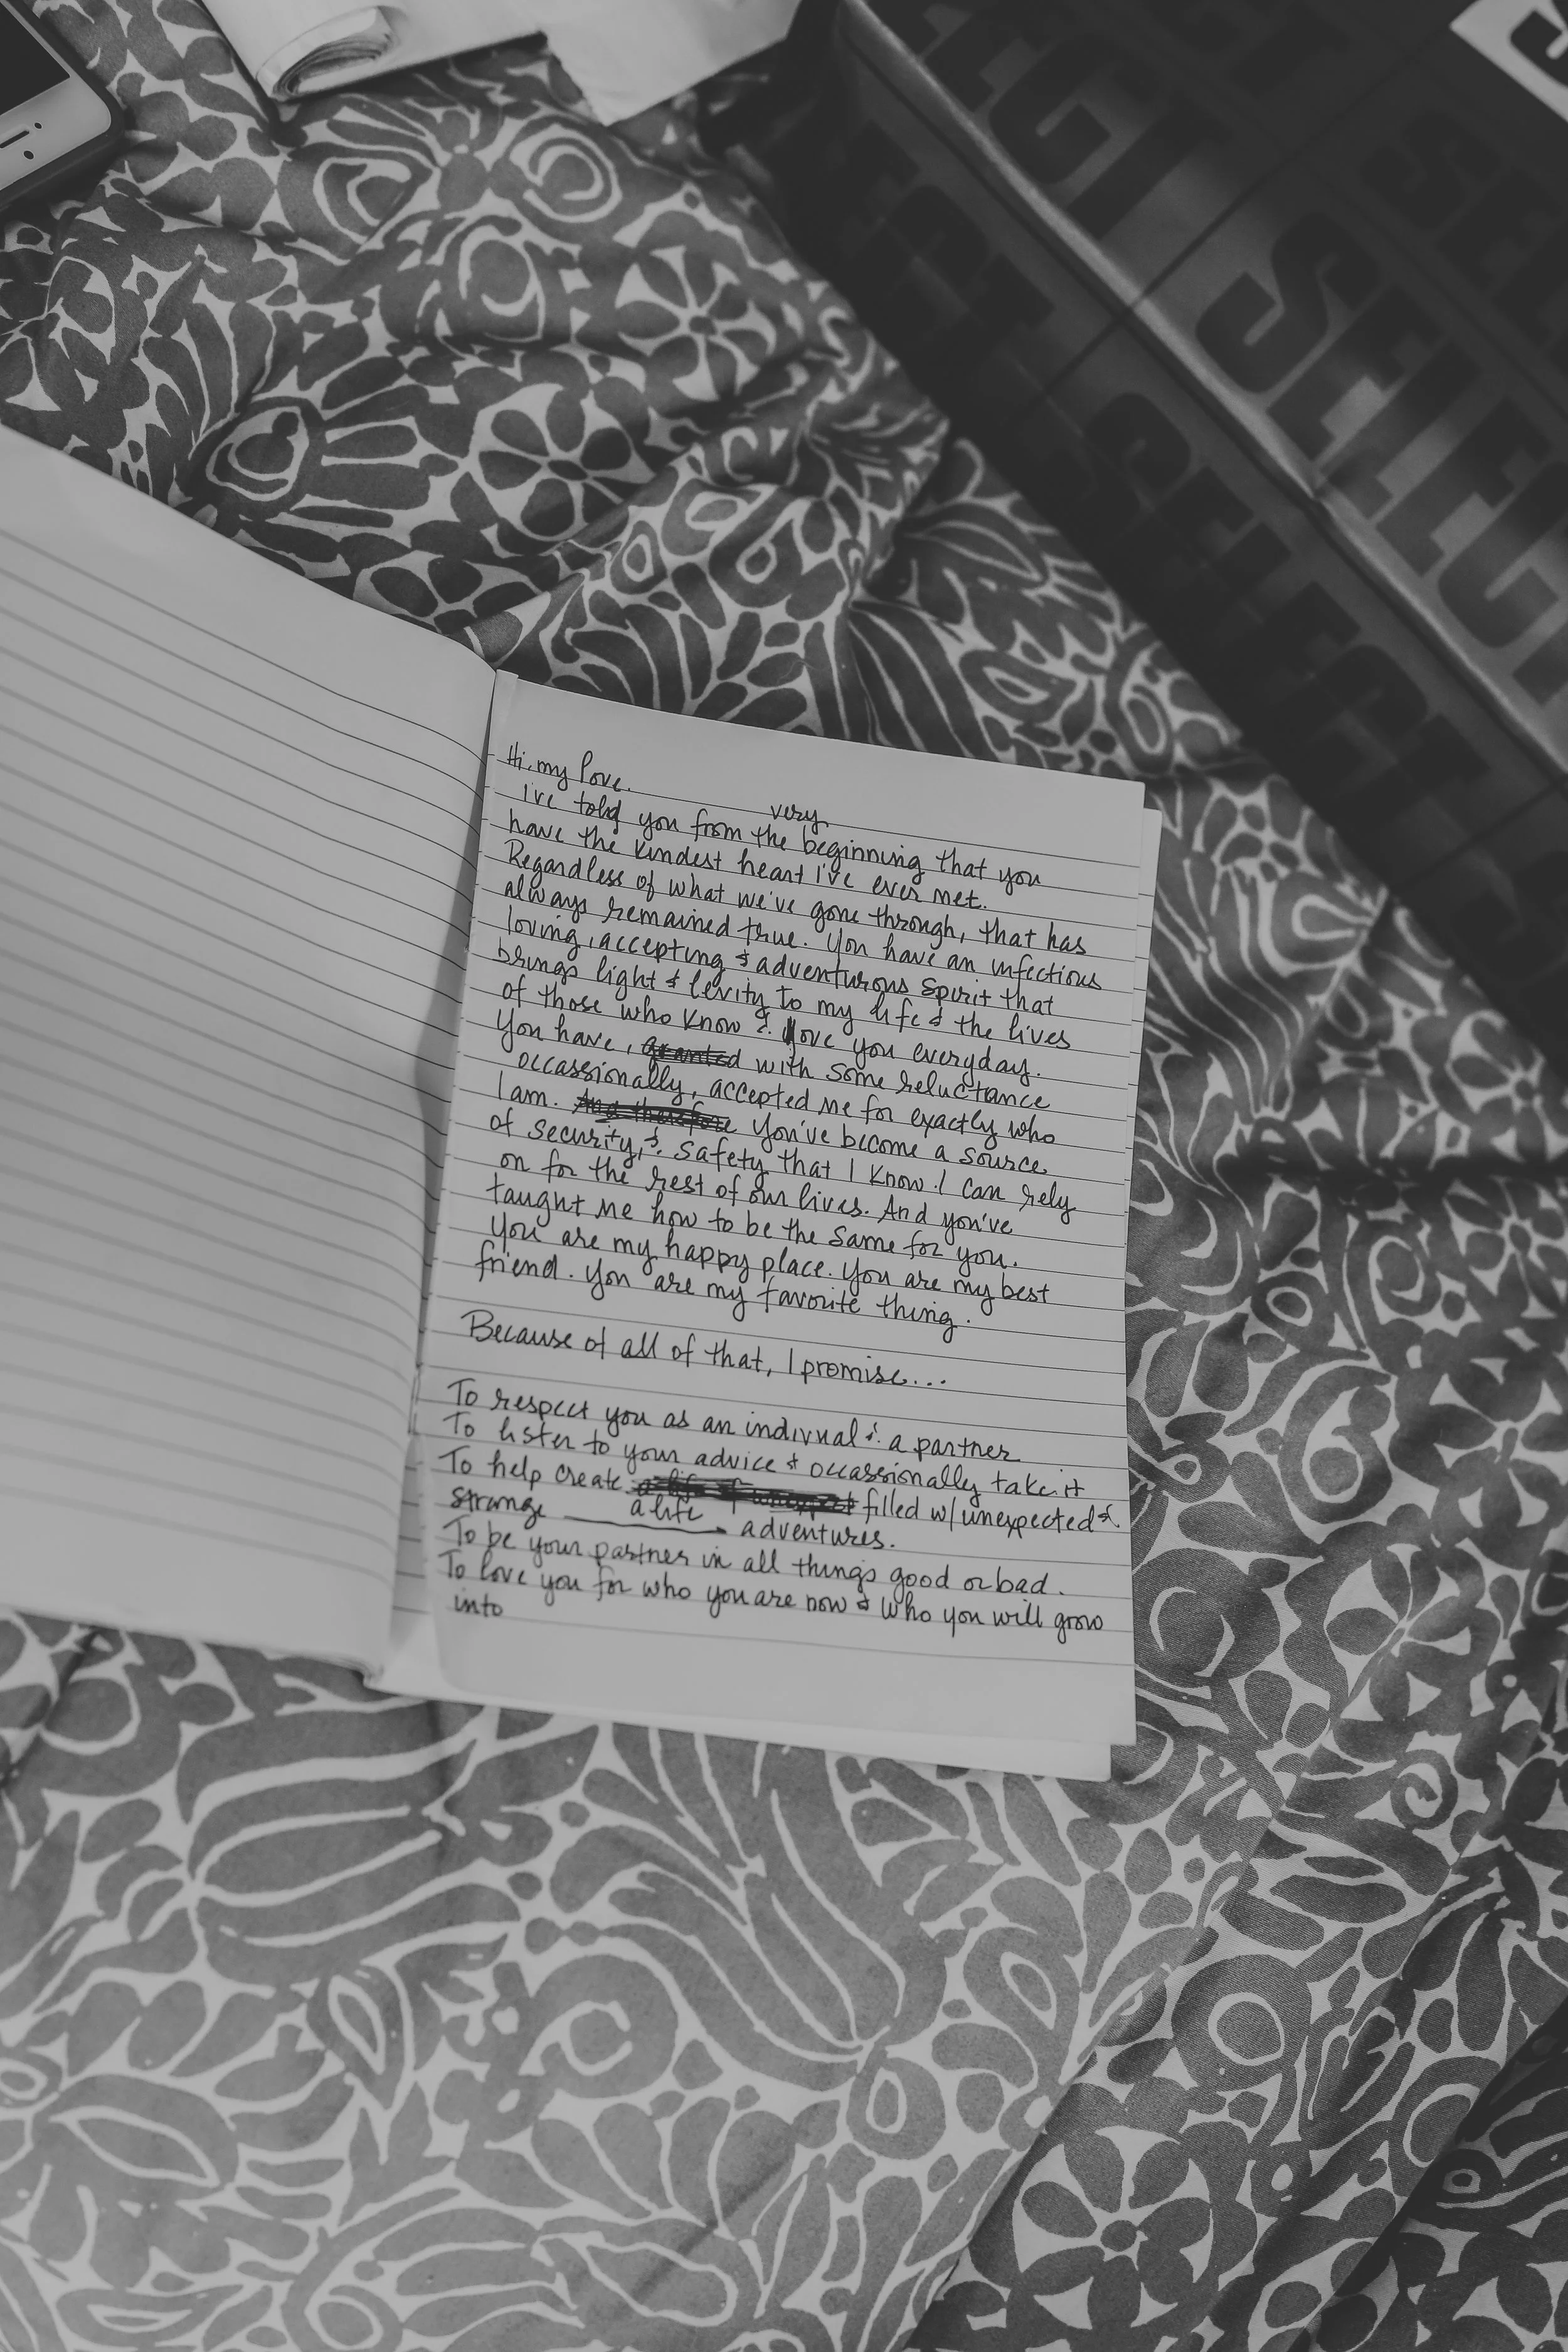 Hi, my love.
very
I've told you from the beginning that you
have the kindest heart I've ever met.
Regardless of what we've gone through, that has
always remained true. You have an infectious
loving, accepting & adventurous spirit that
brings light & levity to my life & the lives
of those who know & love you everyday.
You have, granted with some reluctance
occassionally, accepted me for exactly who
I am. And therefore You've become a source
of security, & safety that I know I can rely
on for the rest of our lives. And you've
taught me how to be the same for you.
You are my happy place. You are my best
friend. You are my favorite thing.
Because of all of that, I promise...
To respect you as an indivual & a partner
To listen to your advice & occassionally take it
To help create a life of unexpect filled w/ unexpected &
strange a life adventures.
To be your partner in all things good or bad.
To love you for who you are now & who you will grow
into
SELECT
SELECT
SELECT